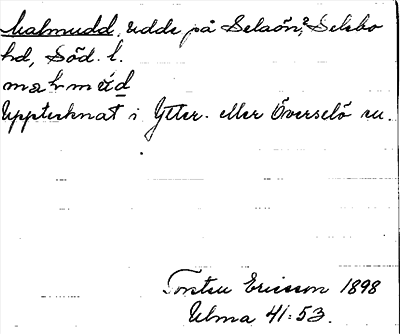 Malmudd, udde på Selaön, Selebo
hd, Söd. l.
Upptecknat i Ytter- eller Överselö sn.
Torsten Ericsson 1898
Ulma 41:53.